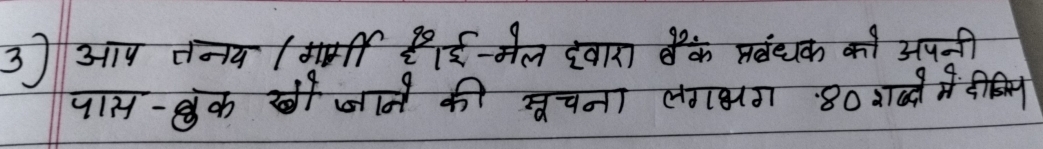 3) आप तनय / गार्गी हैं। ई-मेल द्वारा बैंक प्रबंधक को अपनी
पास-बुक खो जाने की सूचना लगभग 80 शब्दों में दीजिए